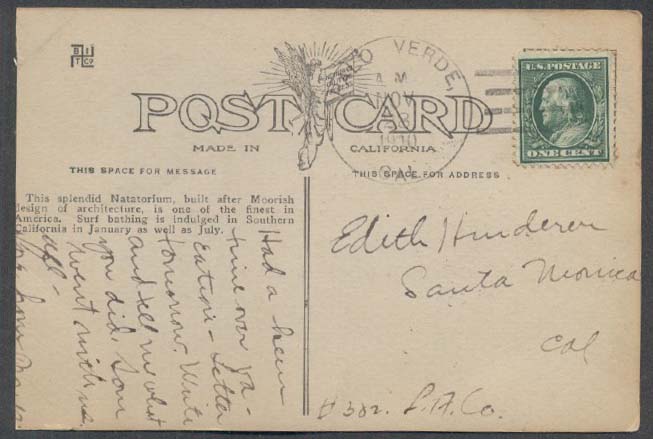 BIT Co
POST CARD
MADE IN CALIFORNIA
THIS SPACE FOR MESSAGE
THIS SPACE FOR ADDRESS
This splendid Natatorium, built after Moorish
design of architecture, is one of the finest in
America. Surf bathing is indulged in Southern
California in January as well as July.
Had a keen
time over va-
cation - Letter
tomorrow. Write
and tell me what
you did. Som
went with us
VERDE,
A M
NOV
1910
CAL
U.S. POSTAGE
ONE CENT
Edith Hunderer
Santa Monica
Cal
#382. L.A. Co.